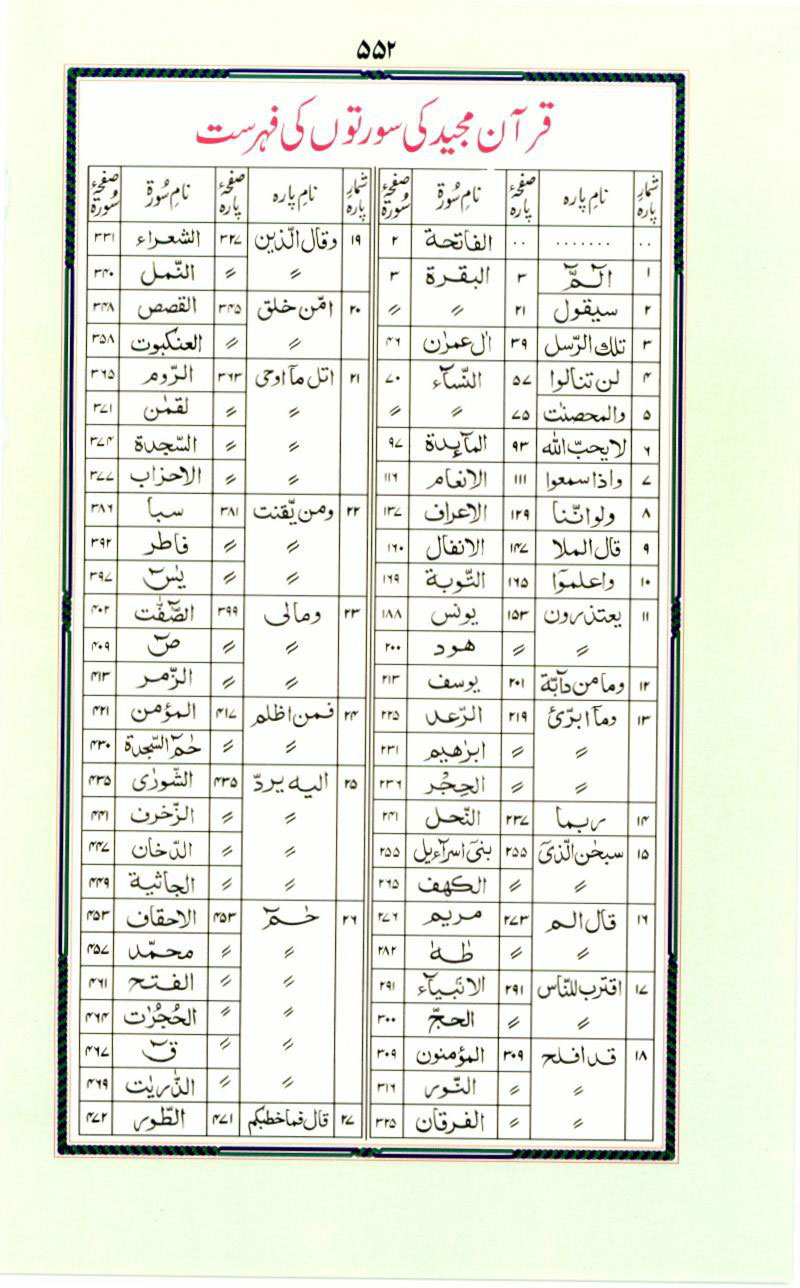 ۵۵۲
قرآن مجید کی سورتوں کی فہرست
شمار پارہ نامِ پارہ صفحۂ پارہ نامِ سُورۃ صفحۂ سُورۃ
۰۰ ۰۰۰۰۰۰۰ ۰۰ الفاتحة ۲
۱ الٓمّٓ ۳ البقرة ۳
۲ سيقول ۲۱ 〃 〃
۳ تلك الرّسل ۳۹ اٰل عمرٰن ۴۶
۴ لن تنالوا ۵۷ النّسآء ۷۰
۵ والمحصنٰت ۷۵ 〃 〃
۶ لا يحبّ الله ۹۳ المآئدة ۹۷
۷ واذا سمعوا ۱۱۱ الانعام ۱۱۶
۸ ولو انّنا ۱۲۹ الاعراف ۱۳۷
۹ قال الملا ۱۴۷ الانفال ۱۶۰
۱۰ واعلموٓا ۱۶۵ التّوبة ۱۶۹
۱۱ يعتذرون ۱۵۳ يونس ۱۸۸
〃 هود ۲۰۰
۱۲ وما من دآبّة ۲۰۱ يوسف ۲۱۳
۱۳ ومآ ابرّئ ۲۱۹ الرّعد ۲۲۵
〃 〃 ابرٰهيم ۲۳۱
〃 〃 الحِجْر ۲۳۶
۱۴ ربما ۲۳۷ النّحل ۲۴۱
۱۵ سبحٰن الّذىٓ ۲۵۵ بنىٓ اسرآءيل ۲۵۵
〃 〃 الكهف ۲۶۵
۱۶ قال الم ۲۷۳ مريم ۲۷۶
〃 〃 طٰهٰ ۲۸۲
۱۷ اقترب للنّاس ۲۹۱ الانبيآء ۲۹۱
〃 〃 الحجّ ۳۰۰
۱۸ قد افلح ۳۰۹ المؤمنون ۳۰۹
〃 〃 النّور ۳۱۶
〃 〃 الفرقان ۳۲۵
شمار پارہ نامِ پارہ صفحۂ پارہ نامِ سُورۃ صفحۂ سُورۃ
۱۹ وقال الّذين ۳۲۷ الشعراء ۳۳۱
〃 〃 النّمل ۳۴۰
۲۰ امّن خلق ۳۴۵ القصص ۳۴۸
〃 〃 العنكبوت ۳۵۸
۲۱ اتل مآ اوحى ۳۶۳ الرّوم ۳۶۵
〃 〃 لقمٰن ۳۷۱
〃 〃 السّجدة ۳۷۴
〃 〃 الاحزاب ۳۷۷
۲۲ ومن يّقنت ۳۸۱ سبا ۳۸۶
〃 〃 فاطر ۳۹۲
〃 〃 يٰسٓ ۳۹۷
۲۳ ومالى ۳۹۹ الصّٰٓفّٰت ۴۰۲
〃 〃 صٓ ۴۰۹
〃 〃 الزّمر ۴۱۳
۲۴ فمن اظلم ۴۱۷ المؤمن ۴۲۱
〃 〃 حٰمٓ السّجدة ۴۳۰
۲۵ اليه يردّ ۴۳۵ الشّورٰى ۴۳۵
〃 〃 الزّخرف ۴۴۱
〃 〃 الدّخان ۴۴۷
〃 〃 الجاثية ۴۴۹
۲۶ حٰمٓ ۴۵۳ الاحقاف ۴۵۳
〃 〃 محمّد ۴۵۷
〃 〃 الفتح ۴۶۱
〃 〃 الحُجُرٰت ۴۶۴
〃 〃 قٓ ۴۶۷
〃 〃 الذّٰريٰت ۴۶۹
۲۷ قال فما خطبكم ۴۷۱ الطّور ۴۷۲